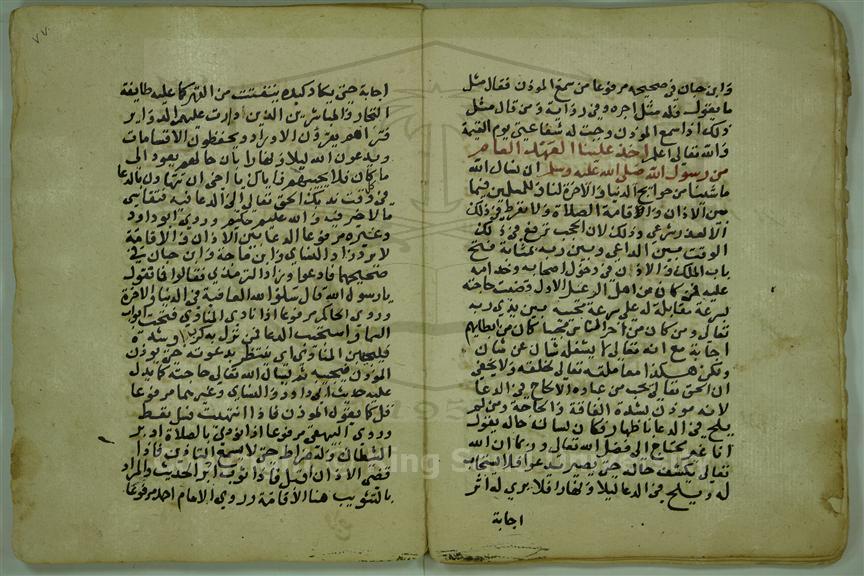 وابن حبان في صحيحه مرفوعا من سمع المؤذن فقال مثل
ما يقول فله مثل اجره وفي رواية ومن قال مثل
ذلك اذا سمع المؤذن وجبت له شفاعتي يوم القيمة
والله تعالى اعلم اخذ علينا العهد العام
من رسول الله صلى الله عليه وسلم ان نسال الله
ما شينا من حوايج الدنيا والاخرة لنا وللمسلمين فيما
بين الاذان والاقامة الصلاة ولا نفرط في ذلك
الا لعذر شرعي وذلك لان الحجب ترفع في ذلك
الوقت بين الداعي وبين ربه بمثابة فتح
باب الملك والاذن في دخول اصحابه وخدامه
عليه فمن كان من اهل الرعيل الاول قضيت حاجته
بسرعة مقابلة له على سرعة مجيه بين يدي ربه
تعالى ومن كان من اخر الناس مجيا كان من ابطاهم
اجابة مع انه تعالى لا يشغله شان عن شان
ولكن هكذا معاملته تعالى لخلقه ولا يخفى
ان الحق تعالى يحب من عباده الالحاح في الدعا
لانه موذن بشدة الفاقة والحاجة ومن لم
يلح في الدعا فكان لسان حاله يقول
انا غير محتاج الى فضل الله تعالى وربما ان الله
تعالى يكشف حاله حتى يصير يدعو فلا يستجاب
له ويلح في الدعا ليلا ونهارا فلا يرى له اثر
اجابة
٧٧
اجابة حتى يكاد كبده يتفتت من القهر كما عليه طايفة
التجار والمباشرين الذين دارت عليهم الدواير
فتراهم يقرؤن الاوراد ويحفظون الاقسامات
ويدعون الله ليلا ونهارا بان حالهم يعود الى
ما كان فلا يجيبهم فاياك يا اخي ان تتهاون بالدعا
في وقت ندبك الحق تعالى الى الدعا فيه فتقاسي
ما لا خير فيه والله عليم حكيم وروى ابو داود
وغيره مرفوعا الدعا بين الاذان والاقامة
لا يرد زاد النساي وابن ماجة وابن حبان في
صحيحهما فادعوا وزاد الترمذي فقالوا فما نقول
يا رسول الله قال سلوا الله العافية في الدنيا والاخرة
وروى الحاكم مرفوعا اذا نادى المنادي فتحت ابواب
السما واستجيب الدعا فمن نزل به كرب او شدة
فليتحين المنادي اي ينتظر بدعوته حتى يؤذن
المؤذن فيجيبه ثم يسال الله تعالى حاجته كما يدل
عليه حديث ابى داود والنساي وغيرهما مرفوعا
قل كما يقول المؤذن فاذا انتهيت فسل تعط
وروى البيهقي مرفوعا اذا نودي بالصلاة ادبر
الشيطان وله ضراط حتى لا يسمع التاذين فاذا
قضي الاذان اقبل فاذا ثوب ادبر الحديث والمراد
بالتثويب هنا الاقامة وروى الامام احمد مرفوعا